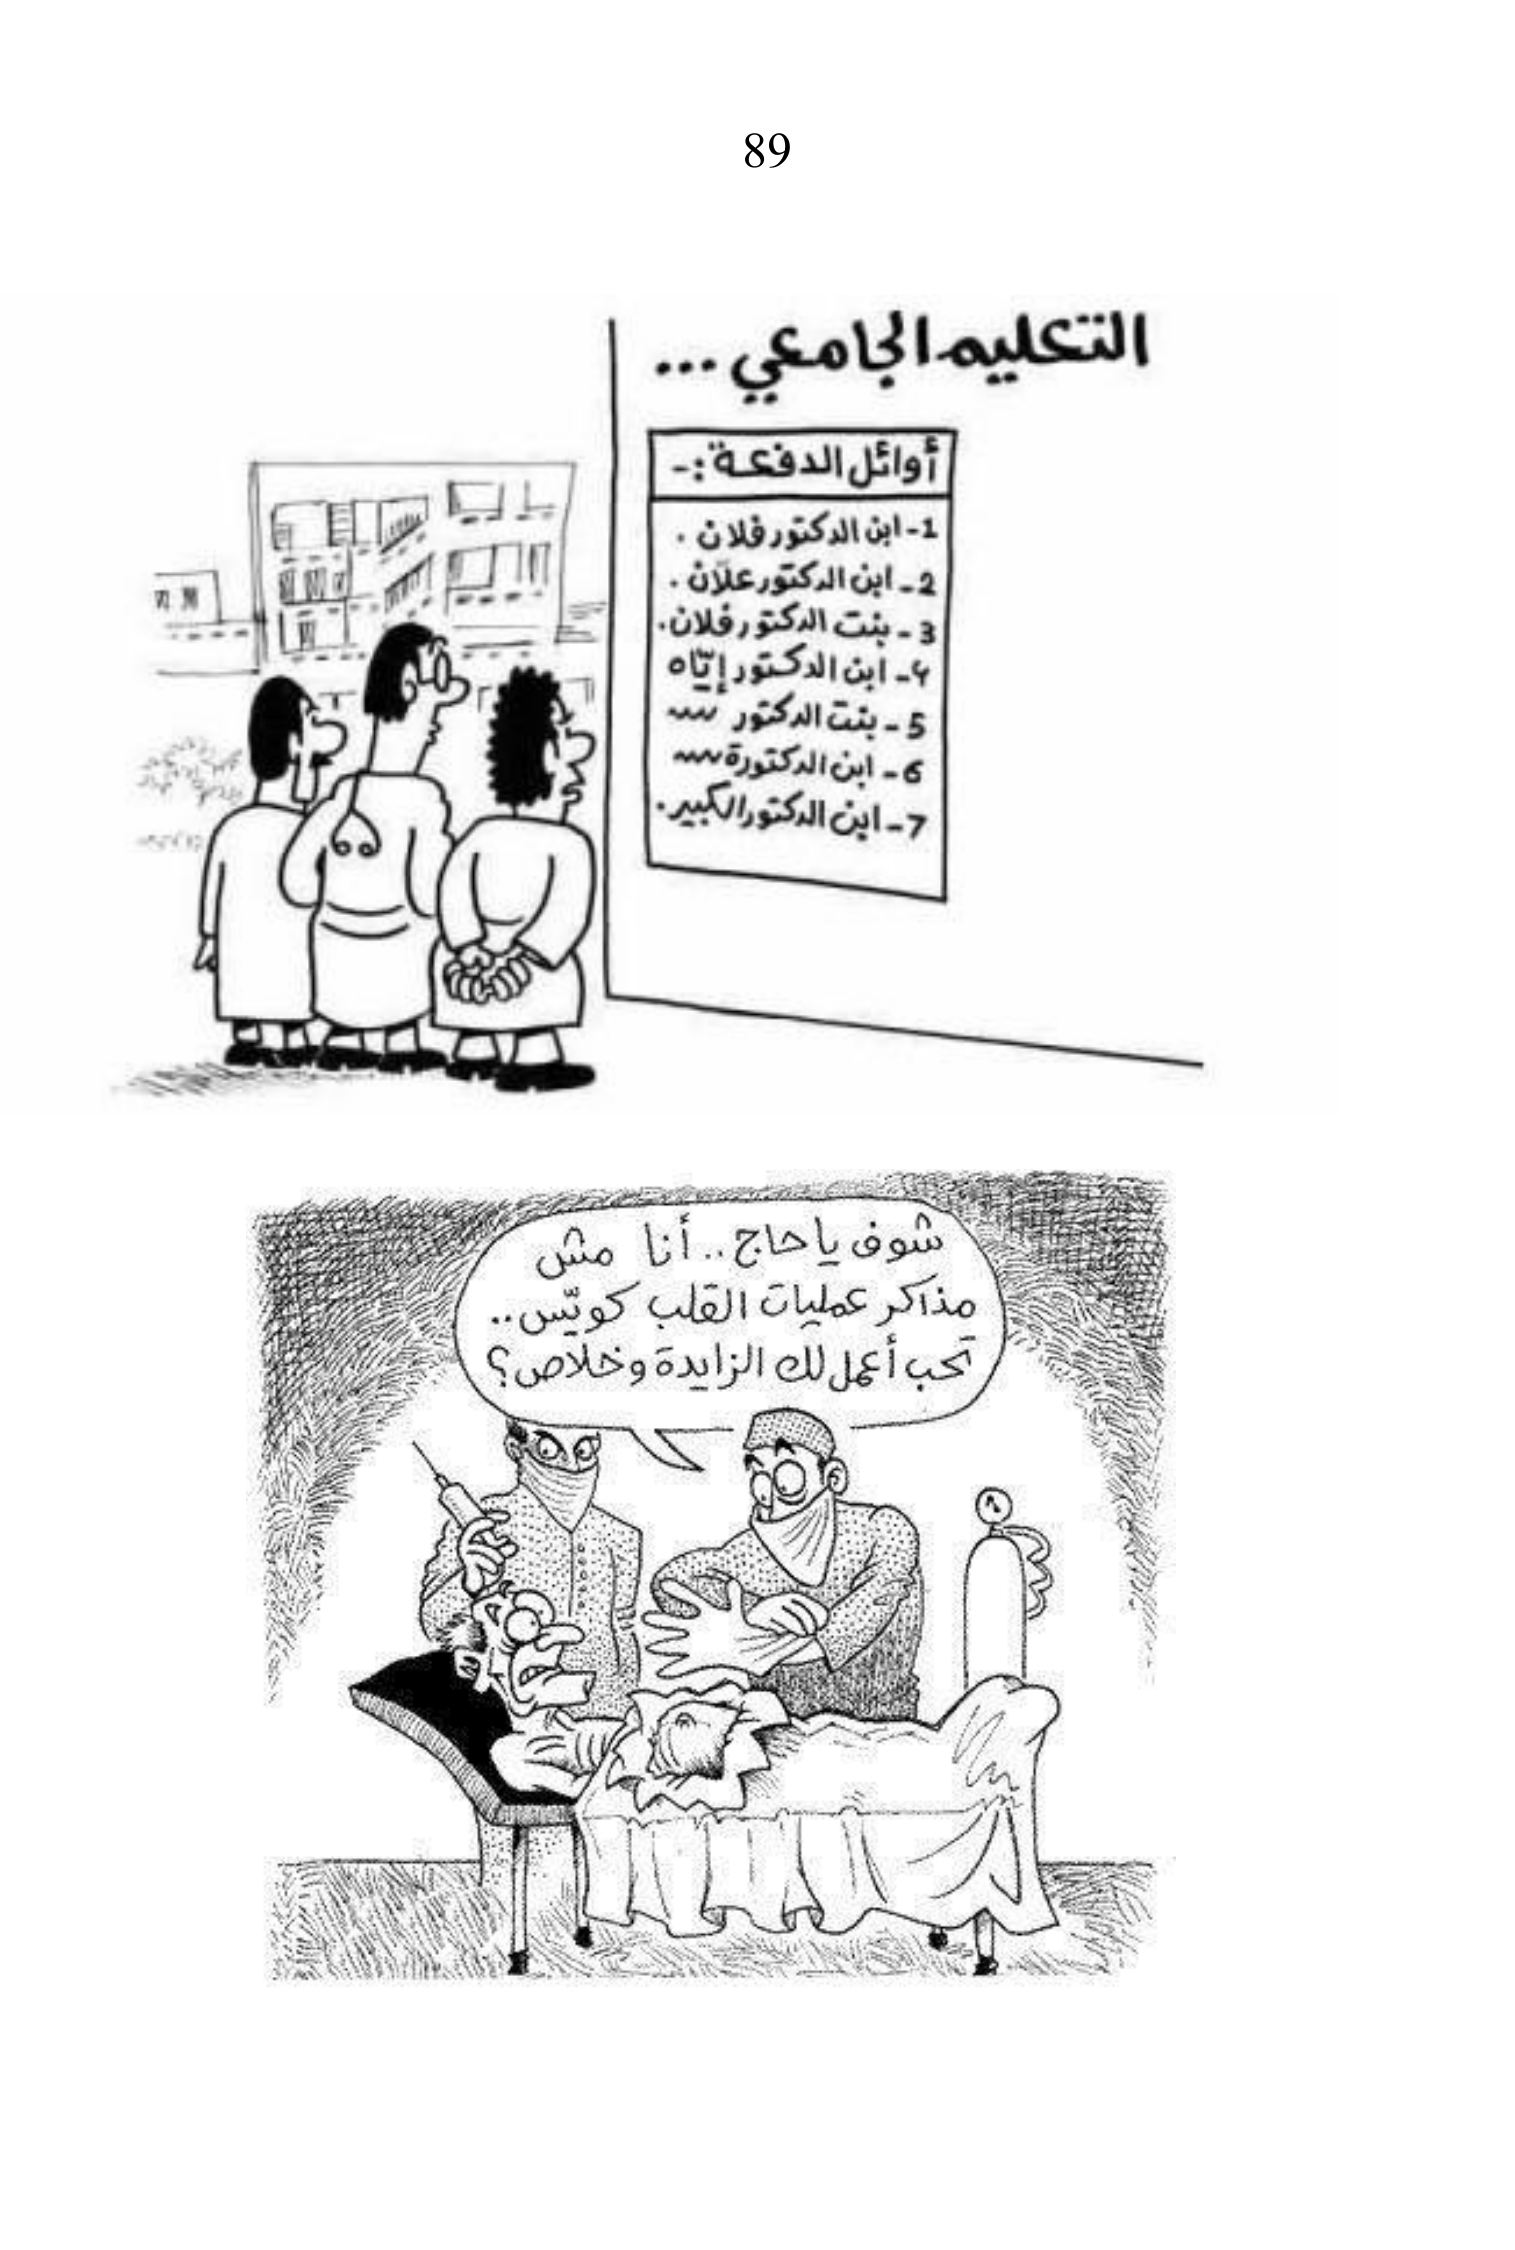 89
التعليم الجامعي ...
أوائل الدفعة :-
1- ابن الدكتور فلان .
2- ابن الدكتور علّان .
3- بنت الدكتور فلان .
4- ابن الدكتور إيّاه
5- بنت الدكتور
6- ابن الدكتورة
7- ابن الدكتور الكبير .
شوف يا حاج .. أنا مش
مذاكر عمليات القلب كويّس ..
تحب أعمل لك الزايدة وخلاص ؟